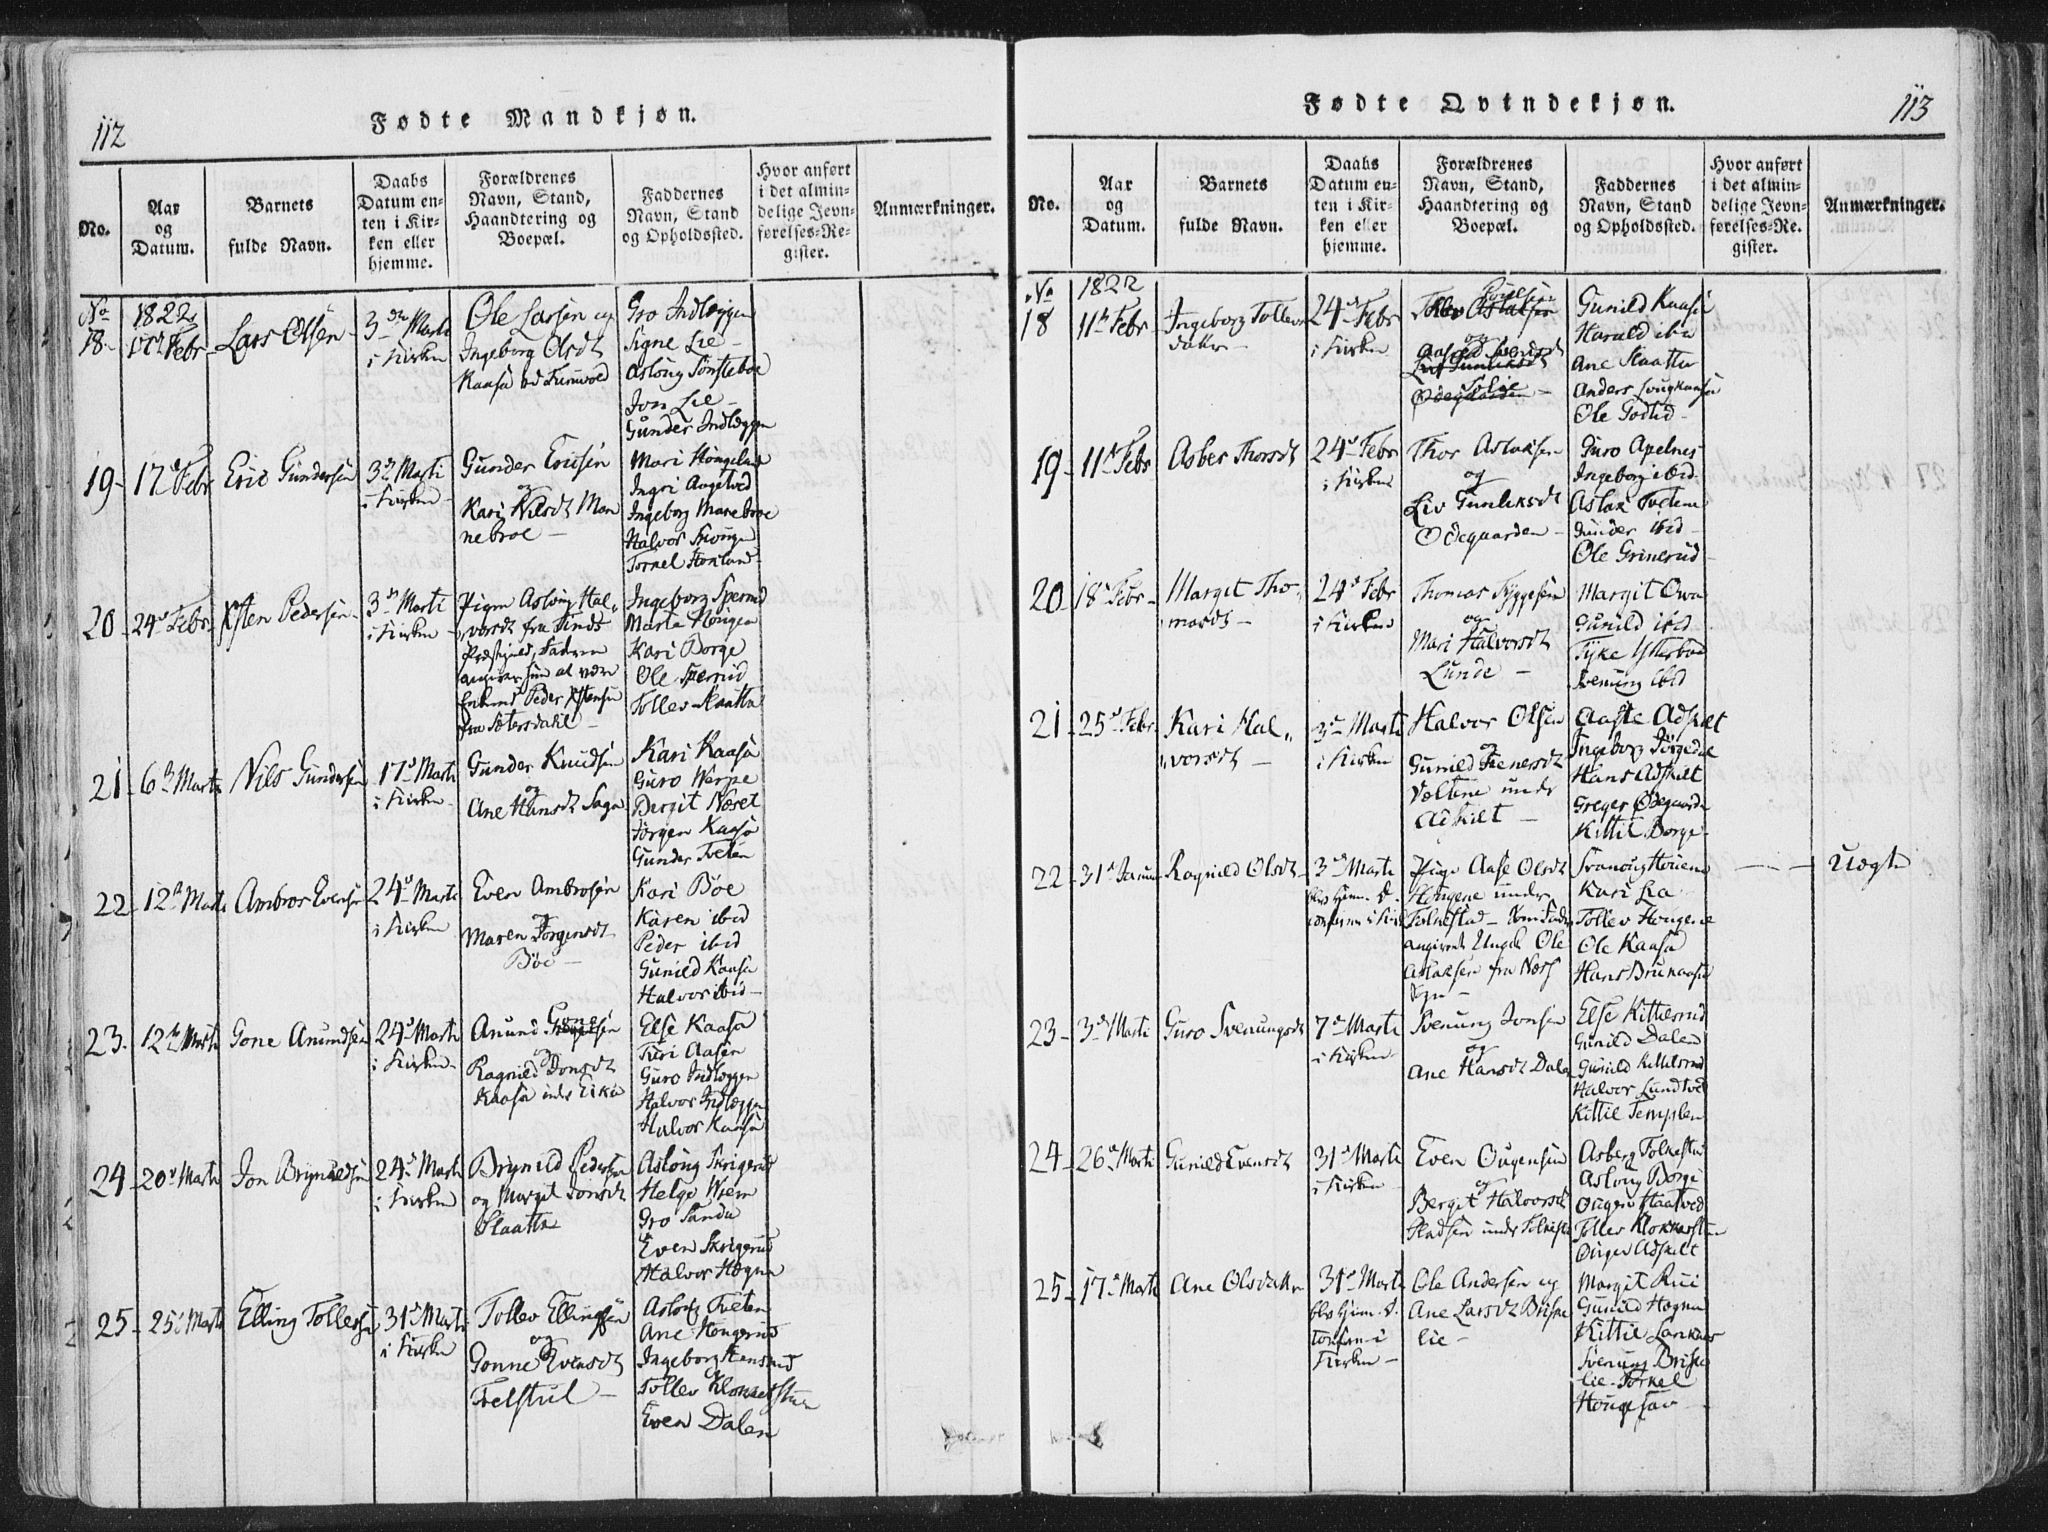 112
Fødte Mandkjøn.
No.
Aar
og
Datum.
Barnets
fulde Navn.
Daabs
Datum en-
ten i Kir-
ken eller
hjemme.
Forældrenes
Navn, Stand,
Haandtering og
Boepæl.
Faddernes
Navn, Stand
og Opholdssted.
Hvor anført
i det almin-
delige Jevn-
førelses-Re-
gister.
Anmærkninger.
No
18-
1822
Febr
Lars Olsen
3 Marti
i Kirken
Ole Larsen og
Ingeborg Olsdt
Kaasa
Gro Indlæggen
Signe Lie
Asloug Sønsteboe
Jon Lie
Gunder Indlæggen
19-
17 Febr
Eric Gundersen
3 Marti
i Kirken
Gunder Ericsen
og
Kari Nilsdt Mane
neboe
Mari
Ingri Aagetved
Ingeborg Maneboe
Halvor
Torkel
20-
24 Febr
Østen Pedersen
3 Marti
i Kirken
Pigen Asloug Hal-
vorsdt fra Tinds
Præstegield, Faderen
angiver hun at være
Enkem. Peder Østensen
fra Sætersdahl
Ingeborg Sperrud
Maria
Kari Borge
Ole Sperrud
Tollev Slaatta
21-
6 Marti
Nils Gundersen
17 Marti
i Kirken
Gunder Knudsen
og
Ane Hansdt Saga
Kari Kaasa
Guro Verpe
Birgit Næset
Jørgen Kaasa
Gunder Tveten
22-
12 Marti
Ambros Evensen
24 Marti
i Kirken
Even Ambrosen
og
Maren Jørgensdt
Bøe
Kari Bøe
Karen ibid
Peder ibid
Gunild Kaasa
Halvor ibid
23.
12 Marti
Gone Anundsen
24 Marti
i Kirken
Anund Gones
og
Ragnild Jonsdt
Kaasa under Eika
Else Kaasa
Kari Aasen
Guro Indlæggen
Halvor Indlæggen
Halvor Kaasa
24-
20 Marti
Jon Brynildsen
24 Marti
i Kirken
Brynild Pedersen
og Margit Jonsdt
Slaatta
Asloug Skrigerud
Helge Wrem
Gro Sanda
Even Skrigerud
Halvor Hægna
25-
25 Marti
Elling Tollefsen
31 Marti
i Kirken
Tollev Ellingsen
og
Gonne Evensdt
Trelstul
Aslong Tveten
Ane Hougerud
Ingeborg Stensrud
Tollev Klokkerstuen
Even Dalen
Fødte Qvindekjøn.
113
No.
Aar
og
Datum.
Barnets
fulde Navn.
Daabs
Datum en-
ten i Kir-
ken eller
hjemme.
Forældrenes
Navn, Stand,
Haandtering og
Boepæl.
Faddernes
Navn, Stand
og Opholdssted.
Hvor anført
i det almin-
delige Jevn-
førelses-Re-
gister.
Anmærkninger.
No
18
1822
11 Febr
Ingeborg Tollevs
datter
24 Febr
i Kirken
Tollev
og
Aasild Svendsdt
Liv Gunleksdt
Solie
Ødegaarden
Gunild Kaasa
Harald ibid
Ane Slaatta
Anders Lougkaasa
Ole Godlid
19-
11 Febr
Asber Thorsdt
24 Febr
i Kirken
Thor Aslaksen
og
Liv Gunleksdt
Ødegaarden
Guro Apelnes
Ingeborg ibid
Aslak Tveten
Gunder ibid
Ole Grinerud
20
18 Febr
Margit Tho-
masdt
24 Febr
i Kirken
Thomas Tyggesen
og
Mari Halvorsdt
Lunde
Margit Evu
Gunild ibid
Tyke Ytterboe
Svenung ibid
21-
25 Febr
Kari Hal-
vorsdt
3 Marti
i Kirken
Halvor Olsen
og
Gunild Steneresdt
Væltene under
Adskilt
Aaste Adskilt
Ingeborg Jørgedal
Hans Adskilt
Greger Ødegaarden
Kittil Borge
22-
31 Januar
Ragnild Olsdt
3 Marti
blev hjem. d.
confirm. i Kirk
Pige Aase Olsdt
Hougene under
Folkestad. Som Fader
angives Ungk. Ole
Aslaksen fra Næss
Sogn
Svanoug Houene
Kari Lia
Tollev Hougene
Ole Kaasa
Hans Brukaasa
Uægte
23-
3 Marti
Guro Svenungsdt
7 Marti
i Kirken
Svenung Jonsen
og
Ane Hansdt Dalen
Else Kittilsrud
Gunild Dalen
Gunild Kittilsrud
Halvor Lundtved
Kittil Templen
24-
26 Marti
Gunild Evensdt
31 Marti
i Kirken
Even Ougensen
og
Berget Halvorsdt
Stadsen under Folkestad
Asberg Folkestad
Aslong Borgi
Ougen Staatved
Tollev Klokkerstuen
Ougen Adskilt
25-
17 Marti
Ane Olsdatter
31 Marti
blev hjem. d.
confirm i
Kirken
Ole Andersen og
Ane Larsdt Briske
lie
Margit Rui
Gunild Hægna
Kittil Lanknes
Svenung Briske
lie. Torkel
Hougesaa